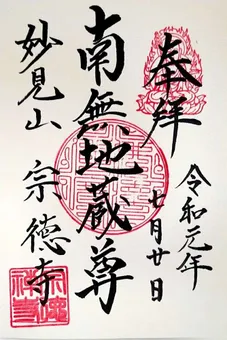 奉拝
令和元年
七月廿日
南無地蔵尊
妙見山 宗徳寺